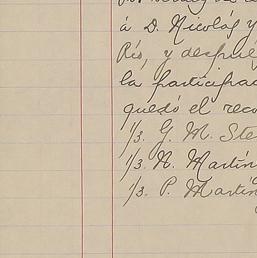 á D. Nicolás y
Rís, y despué
la participac
quedó el reco
1/3. G. M. Ste
1/3. N. Martín
1/3. P. Martín